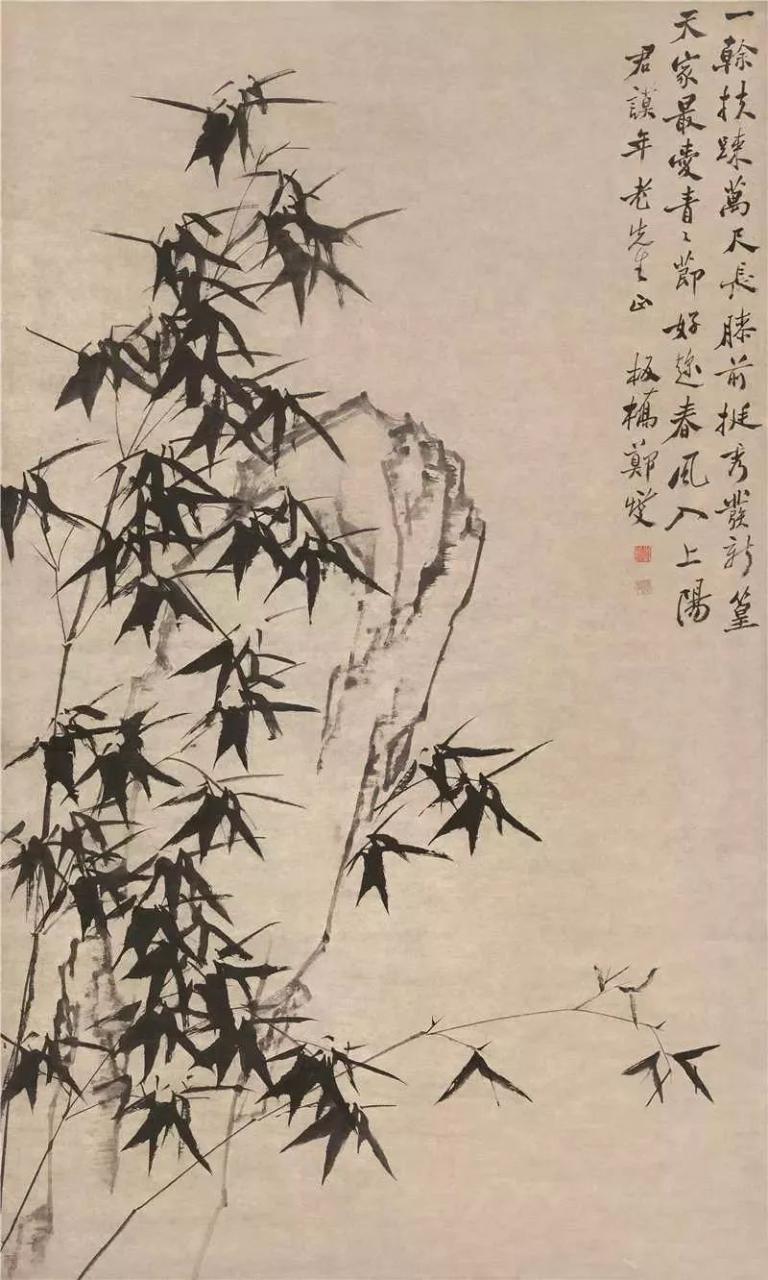 一榦扶疎萬尺長膝前挺秀發新篁
天家最愛青〻節好趂春風入上陽
君謨年老先生正 板橋鄭燮